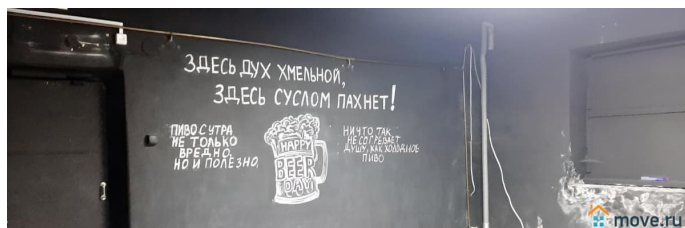 ЗДЕСЬ ДУХ ХМЕЛЬНОЙ,
ЗДЕСЬ СУСЛОМ ПАХНЕТ!
ПИВО С УТРА
НЕ ТОЛЬКО
ВРЕДНО,
НО И ПОЛЕЗНО.
HAPPY
BEER
DAY
НИЧТО ТАК
НЕ СОГРЕВАЕТ
ДУШУ, КАК ХОЛОДНОЕ
ПИВО
move.ru